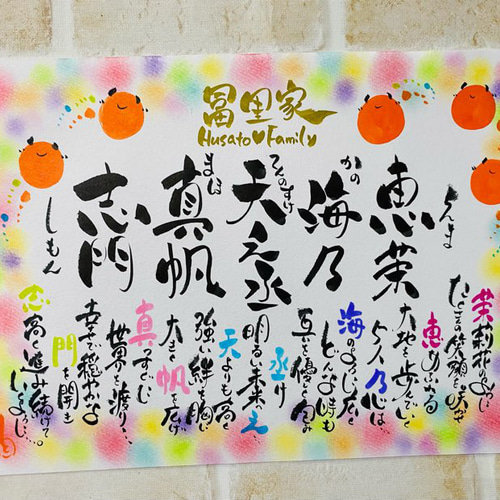 冨里家
Husato♥Family
恵茉
えま
海乃
かの
天之丞
てんのすけ
真帆
まほ
志門
しもん
茉莉花のように
たくさんの笑顔を咲かせ
恵みあふれる
大地を歩んでいく
海のように広く
どんな時も
互いを優しく包み
丞け
明るい未来之
天よりも高く
強い絆を胸に
大きく帆を広げ
真っすぐに
世界を渡り…
幸せで穏やかな
門を開き
志高く進み続けて
いくように…。